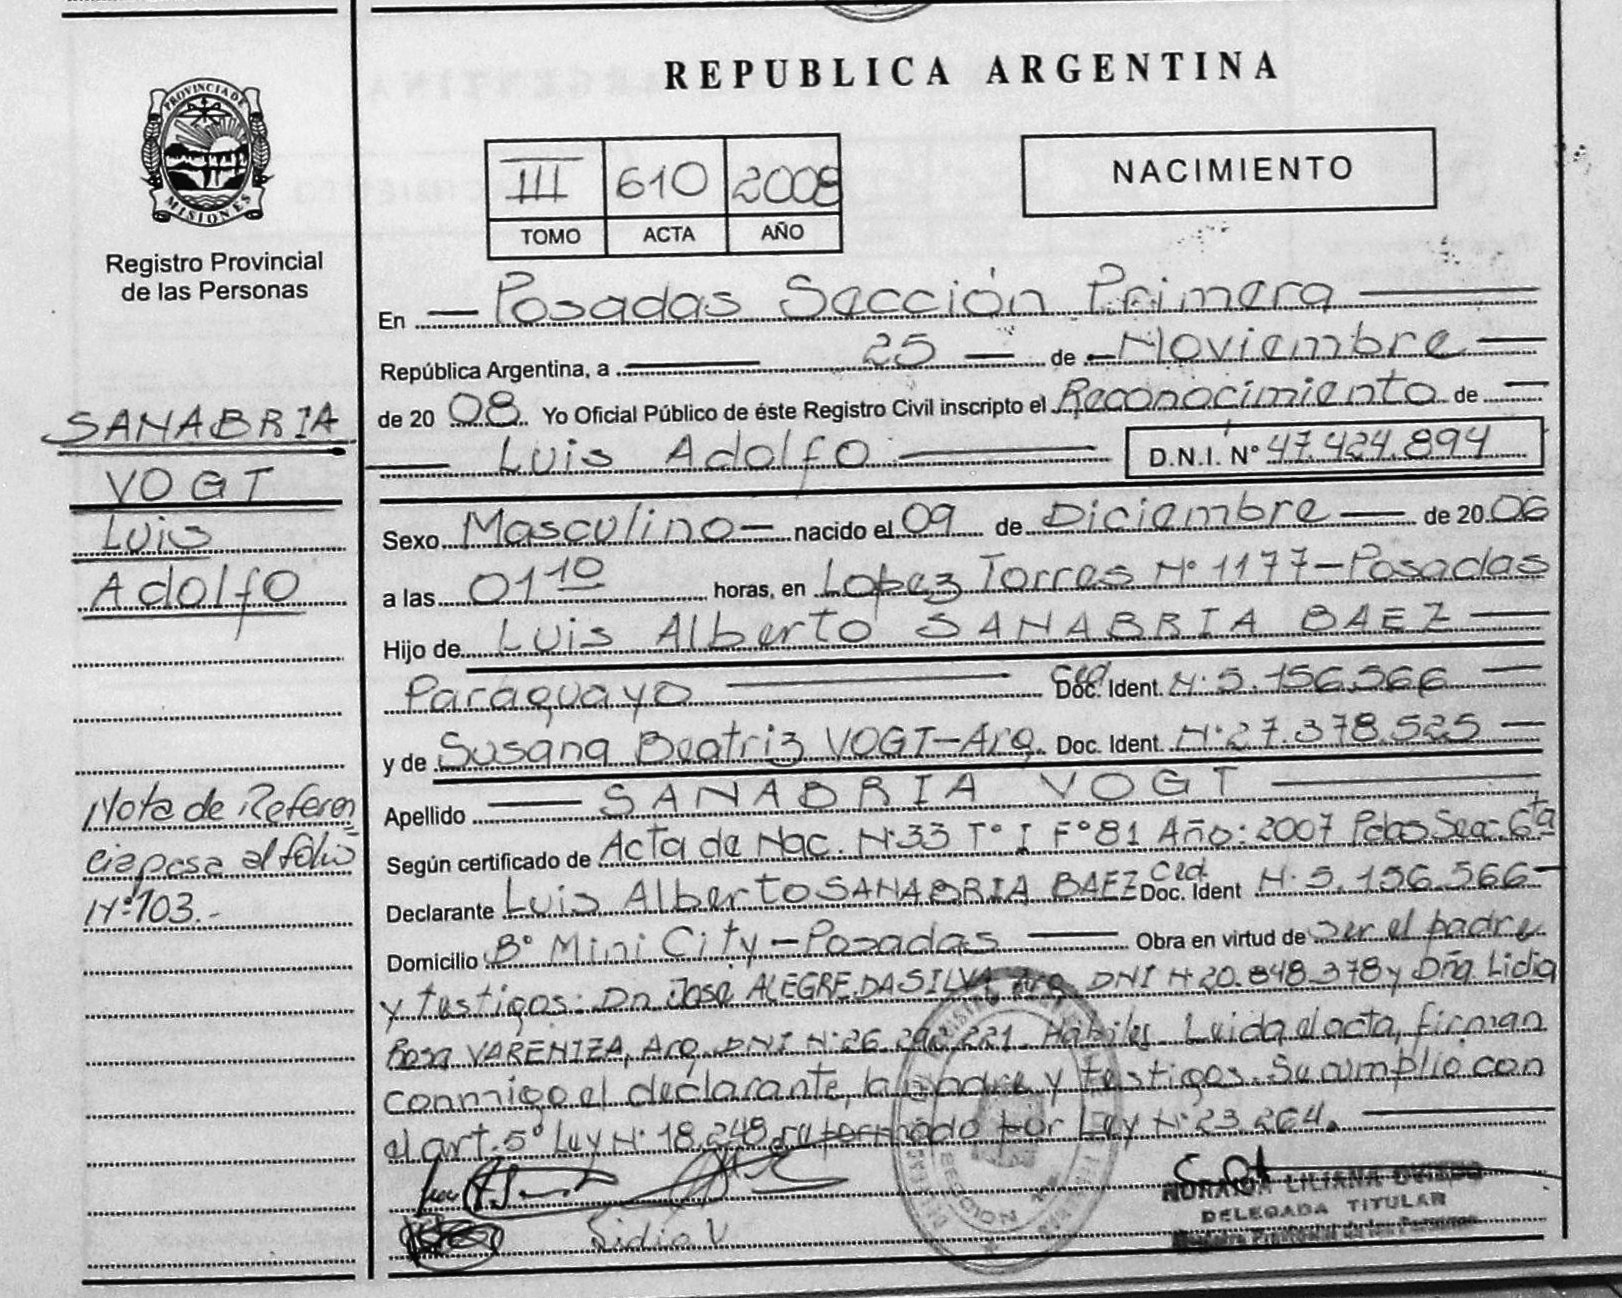 REPUBLICA ARGENTINA
PROVINCIA DE
MISIONES
Registro Provincial
de las Personas
III 610 2008
TOMO ACTA AÑO
NACIMIENTO
SANABRIA
VOGT
Luis
Adolfo
Nota de Referen
cia pasa al folio
Nº 103.-
En Posadas Sección Primera
República Argentina, a 25 de Noviembre
de 2008 Yo Oficial Público de éste Registro Civil inscripto el Reconocimiento de
Luis Adolfo D.N.I. Nº 47.424.894
Sexo Masculino nacido el 09 de Diciembre de 2006
a las 01 10 horas, en Lopez Torres Nº 1177-Posadas
Hijo de Luis Alberto SANABRIA BAEZ
Paraguayo Ced. Doc. Ident. Nº 5.156.566
y de Susana Beatriz VOGT-Arg. Doc. Ident. Nº 27.378.525
Apellido SANABRIA VOGT
Según certificado de Acta de Nac. Nº 33 Tº I Fº 81 Año: 2007 Pdas Sec. 6ta
Declarante Luis Alberto SANABRIA BAEZ Ced. Doc. Ident Nº 5.156.566
Domicilio Bº Mini City-Posadas Obra en virtud de ser el padre
y testigos: Dn. José ALEGRE DASILVA, Arg. DNI Nº 20.848.378 y Dña. Lidia
Rosa VARENIZA, Arg. DNI Nº 26.292.221. Hábiles. Leida el acta, firman
conmigo el declarante, la madre y testigos. Se cumplió con
el art. 5º Ley Nº 18.248 reformado por Ley Nº 23.264.
Lidia V
LILIANA OVIEDO
DELEGADA TITULAR
Registro Provincial de las Personas